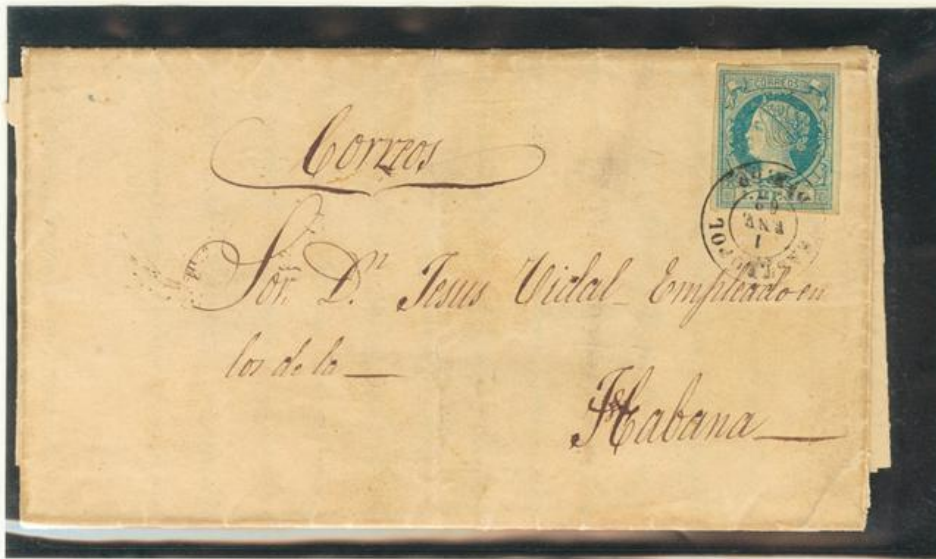 CORREOS
Correos
1
ENE
Sor. Dn. Jesus Vidal Empleado en
los de la
Habana